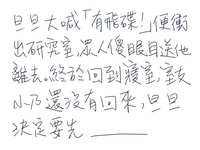 旦旦大喊「有飛碟!」便衝
出研究室,眾人傻眼目送他
離去。終於回到寢室,室友
小乃還沒有回來,旦旦
決定要先______